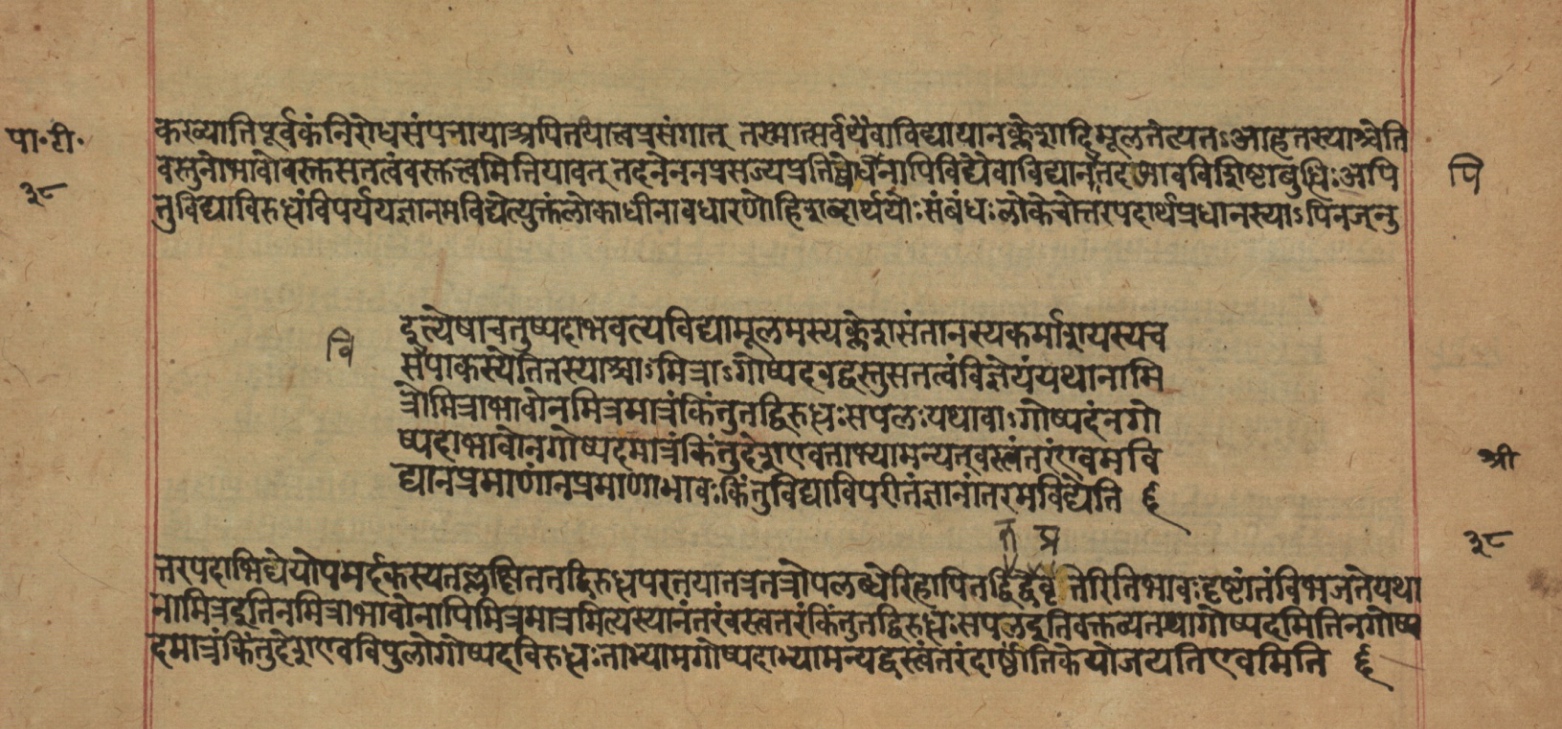 पा॰ टी॰
३८
कख्यातिपूर्वकंनिरोधसंपन्नायाअपितथात्वप्रसंगात् तस्मात्सर्वथैवाविद्यायानक्लेशादिमूलतेत्यतऽआहतस्याश्चेति
वस्तुनोभावोवस्तुसतत्वंवस्तुत्त्वमितियावत् तदनेननप्रसज्यप्रतिषेधोनापिविद्यैवाविद्यानतदभावविशिष्टाबुद्धिःअपि
पि
तुविद्याविरुद्धंविपर्ययज्ञानमविद्येत्युक्तंलोकाधीनावधारणोहिशब्दार्थयोःसंबंधःलोकेचोत्तरपदार्थप्रधानस्याऽपिनञ्नु
इत्येषाचतुष्पदाभवत्यविद्यामूलमस्यक्लेशसंतानस्यकर्माशयस्यच
वि
सपाकस्येतितस्याश्चाऽमित्राऽगोष्पदवद्वस्तुसतत्वंविज्ञेयंयथानामि
त्रोमित्राभावोनमित्रमात्रंकिंतुतद्विरुद्धःसपत्नःयथावाऽगोष्पदंनगो
ष्पदाभावोनगोष्पदमात्रंकिंतुदेशएवताभ्यामन्यत्वस्त्वंतरंएवमवि
द्यानप्रमाणंनप्रमाणाभावःकिंतुविद्याविपरीतंज्ञानांतरमविद्येति ६
श्री
३८
त प्र
त्तरपदाभिधेयोपमर्दकस्यतल्लक्षिततद्विरुद्धपरतयातत्रतत्रोपलब्धेरिहापितद्विद्वेवृत्तेरितिभावःदृष्टांतंविभजतेयथा
नामित्रइतिनमित्राभावोनापिमित्रमात्रमित्यस्यानंतरंवस्त्वतरंकिंतुतद्विरुद्धःसपत्नइतिवक्तव्यतथागोष्पदमितिनगोष्प
दमात्रंकिंतुदेशएवविपुलोगोष्पदविरुद्धःताभ्यामगोष्पदाभ्यामन्यद्वस्त्वंतरंदार्ष्टांतिकेयोजयतिएवमिति ६